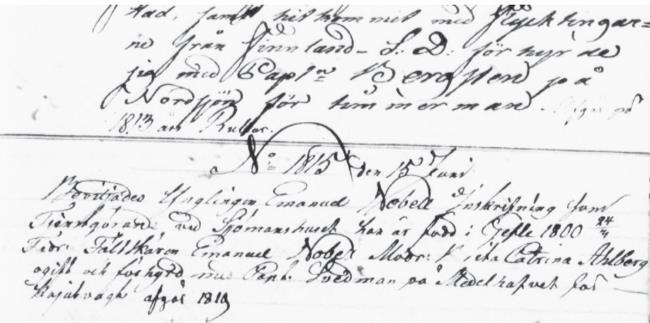 stad, samt hit kom mit med flycktingar=
ne från Finnland - S. D. för hyrde
sig med Capt:n Bergsten på
Nordsjön för timmerman. Afgår på
1813 års Rullor.
N:o 1815 den 15 Juni
Beviljades Ynglingen Emanuel Nobell Inskrifning som
Tienstgörande wid Sjömanshuset han är född i Gefle 1800 24/3
Fadr: Fältskären Emanuel Nobell Modr: Catrina Ahlberg
ogift och förhyrd med Capt: Svedman på Medelhafvet för
Kajutvagt afgår 1819